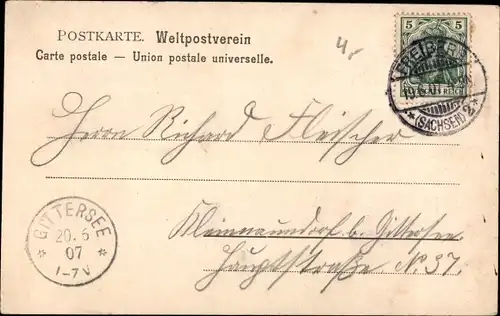 POSTKARTE. Weltpostverein
Carte postale — Union postale universelle.
4,-
5 5
FREIBERG
DEUTSCHES REICH
*(SACHSEN) 2*
Herrn Richard Fleischer
GITTERSEE
20. 6
07
1-7 V
Kleinnaundorf b. Gittersee
Hauptstraße N. 37.